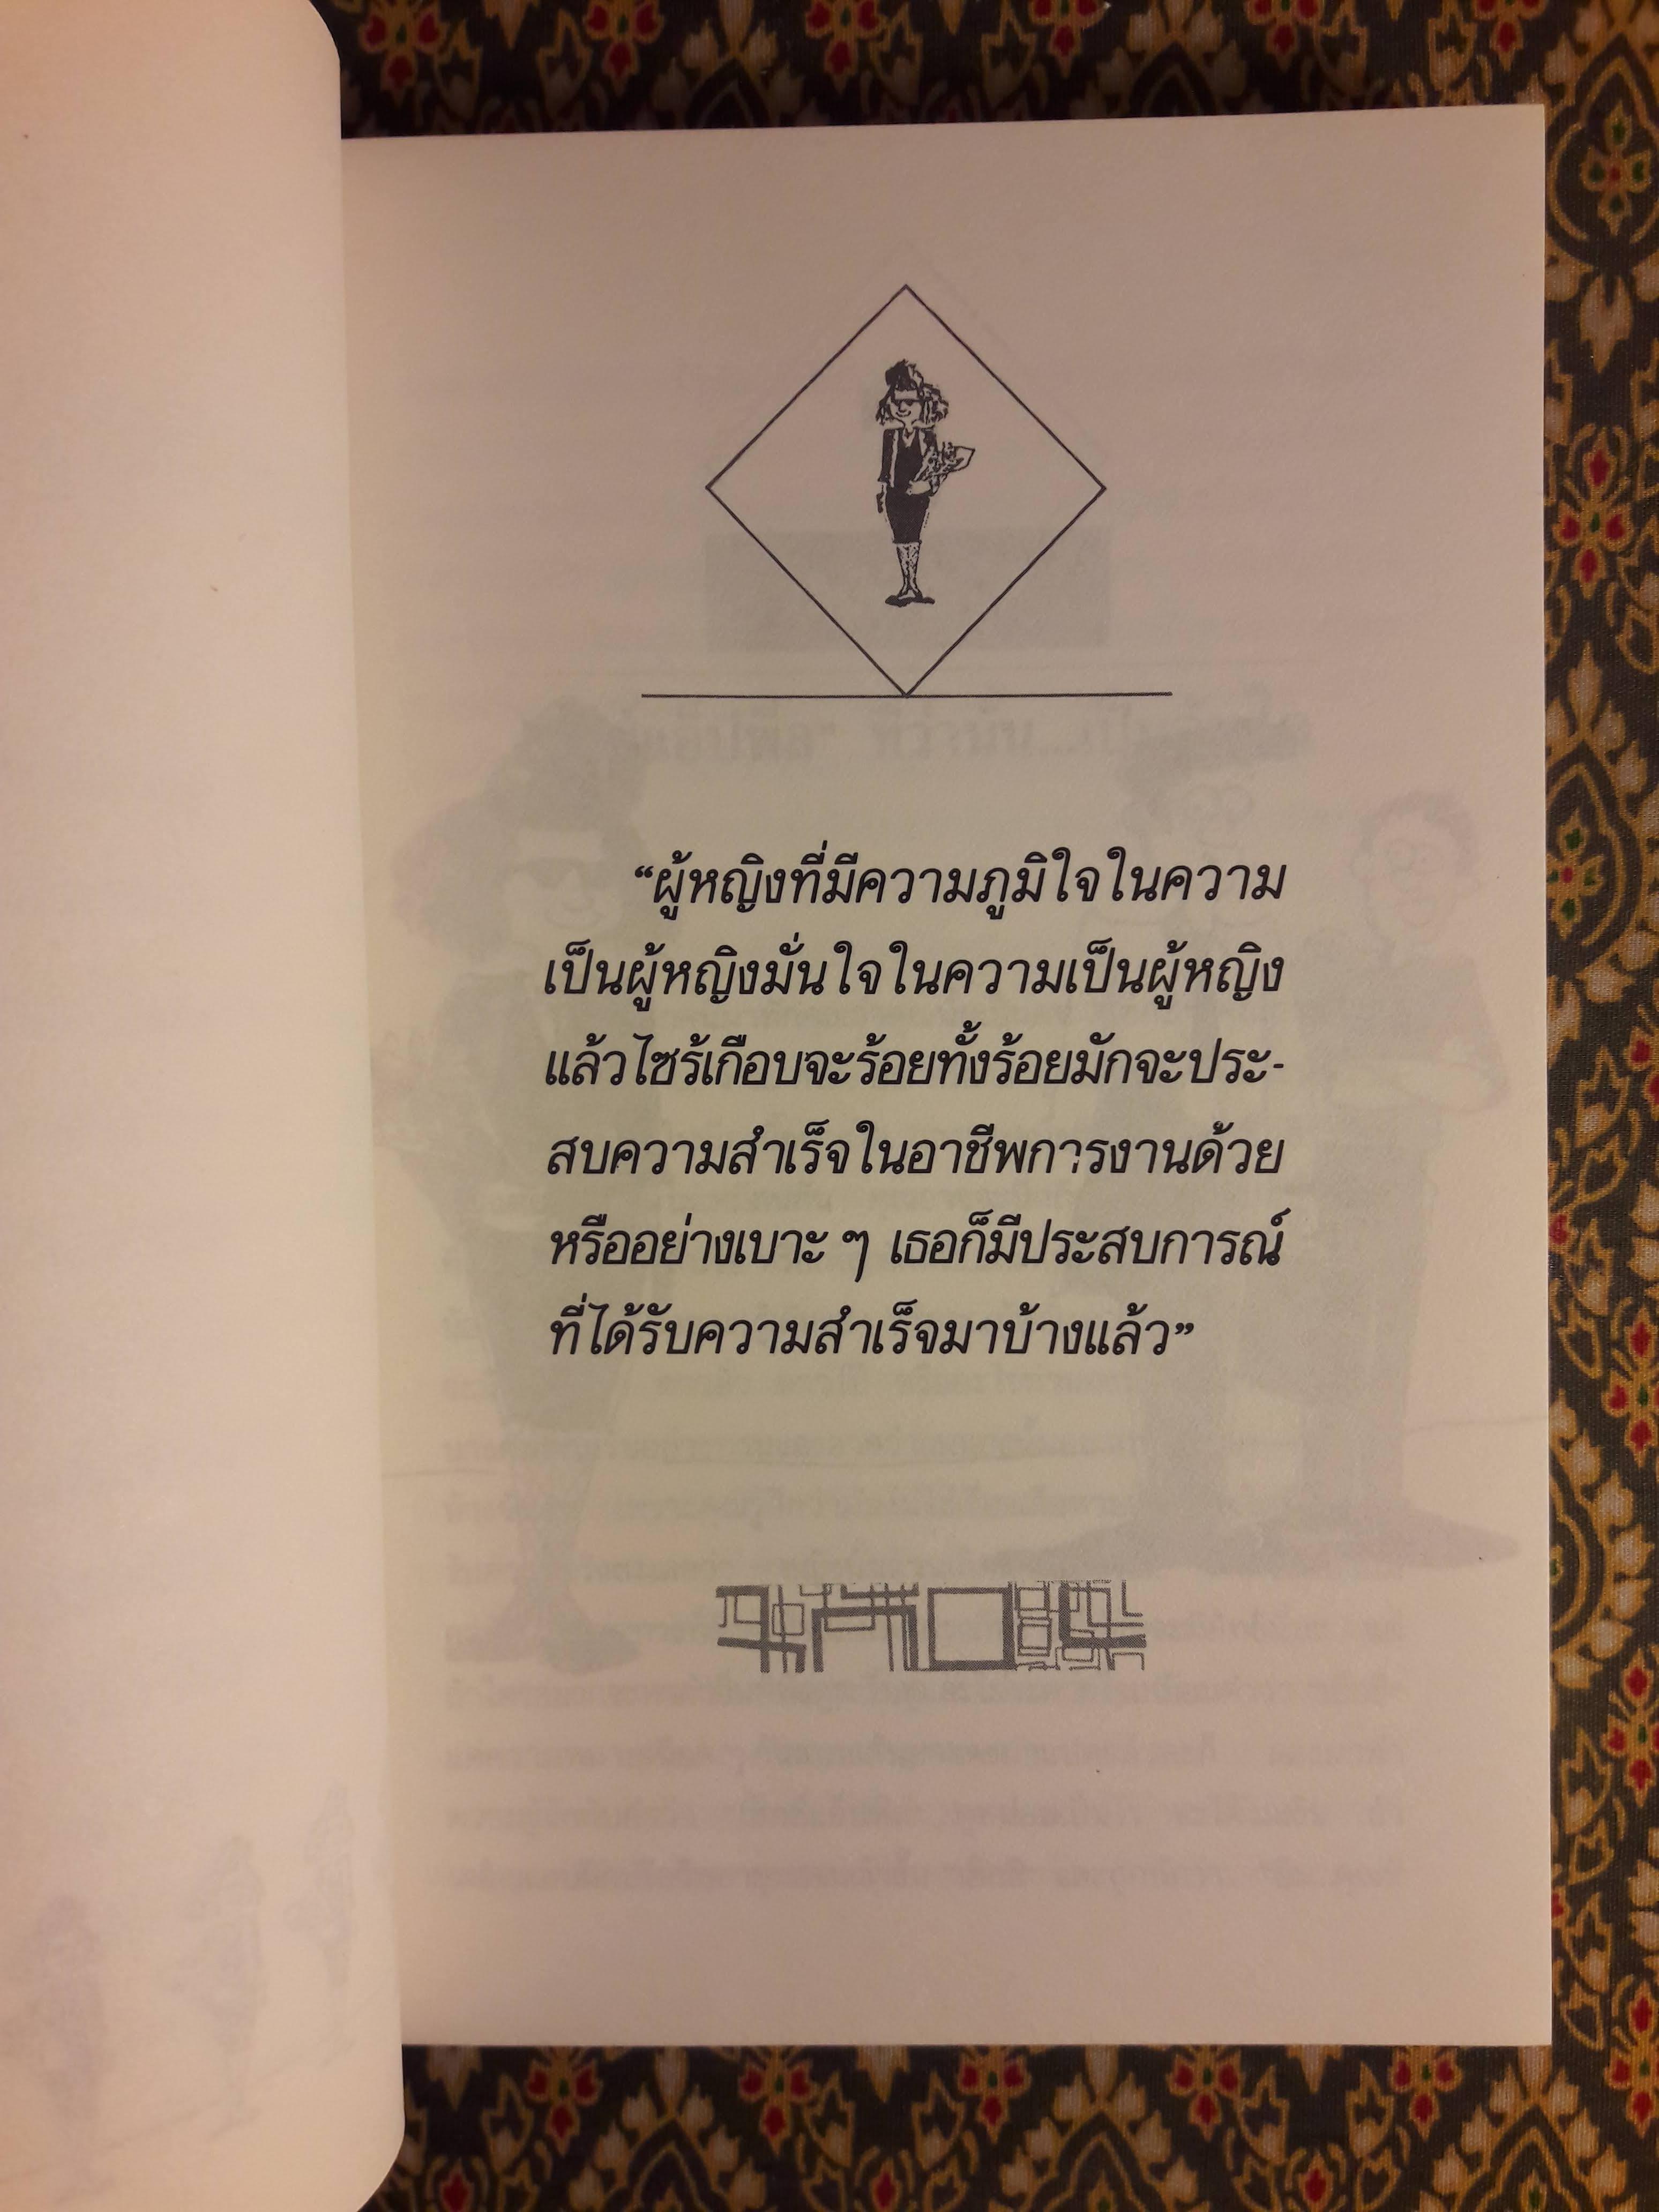 “ผู้หญิงที่มีความภูมิใจในความ
เป็นผู้หญิงมั่นใจในความเป็นผู้หญิง
แล้วไซร้เกือบจะร้อยทั้งร้อยมักจะประ-
สบความสำเร็จในอาชีพการงานด้วย
หรืออย่างเบาะ ๆ เธอก็มีประสบการณ์
ที่ได้รับความสำเร็จมาบ้างแล้ว”